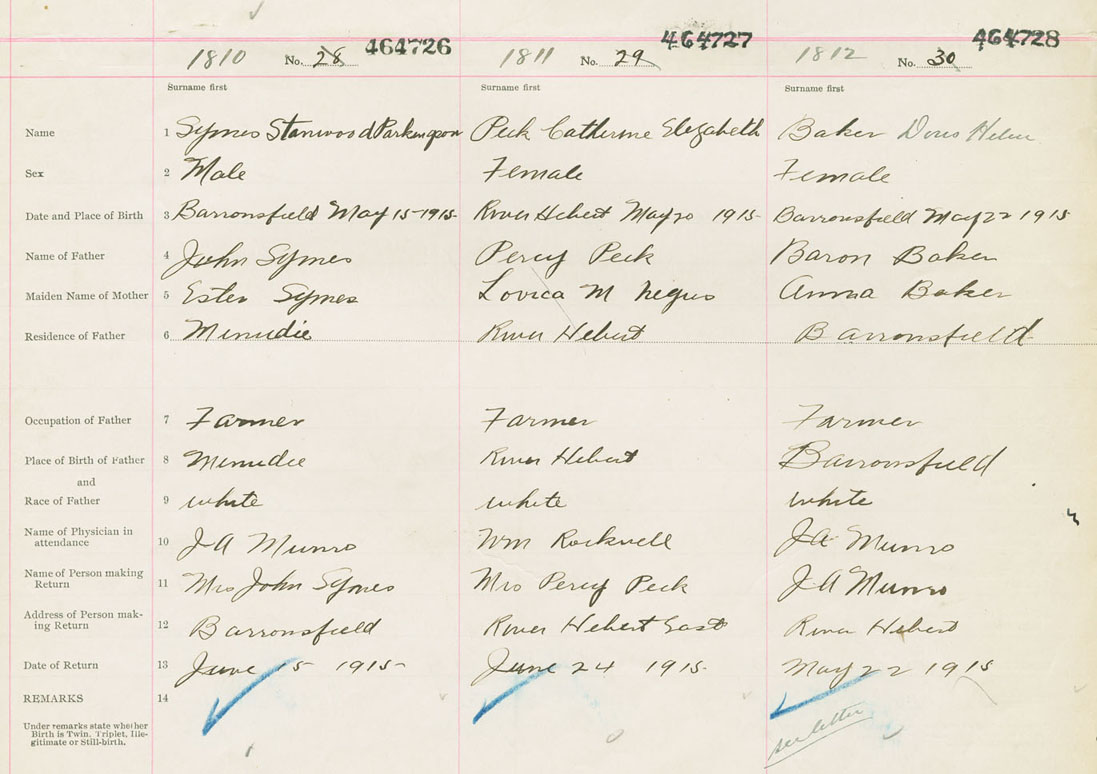 464726 464727 464728
1810 No. 28 1811 No. 29 1812 No. 30
Surname first Surname first Surname first
Name 1 Symes Stanwood Parkinson Peck Catherine Elezabeth Baker Doris Helen
Sex 2 Male Female Female
Date and Place of Birth 3 Barronsfield May 15-1915- River Hebert May 20 1915- Barronsfield May 22 1915
Name of Father 4 John Symes Percy Peck Baron Baker
Maiden Name of Mother 5 Ester Symes Lovica M Negus Anna Baker
Residence of Father 6 Minudie River Hebert Barronsfield
Occupation of Father 7 Farmer Farmer Farmer
Place of Birth of Father 8 Minudie River Hebert Barronsfield
and
Race of Father 9 white white white
Name of Physician in
attendance 10 J A Munro Wm Rockwell J A Munro
Name of Person making
Return 11 Mrs John Symes Mrs Percy Peck J A Munro
Address of Person mak-
ing Return 12 Barronsfield River Hebert East River Hebert
Date of Return 13 June 15 1915- June 24 1915- May 22 1915
REMARKS 14
Under remarks state whether
Birth is Twin, Triplet, Ille-
gitimate or Still-birth.
see letter